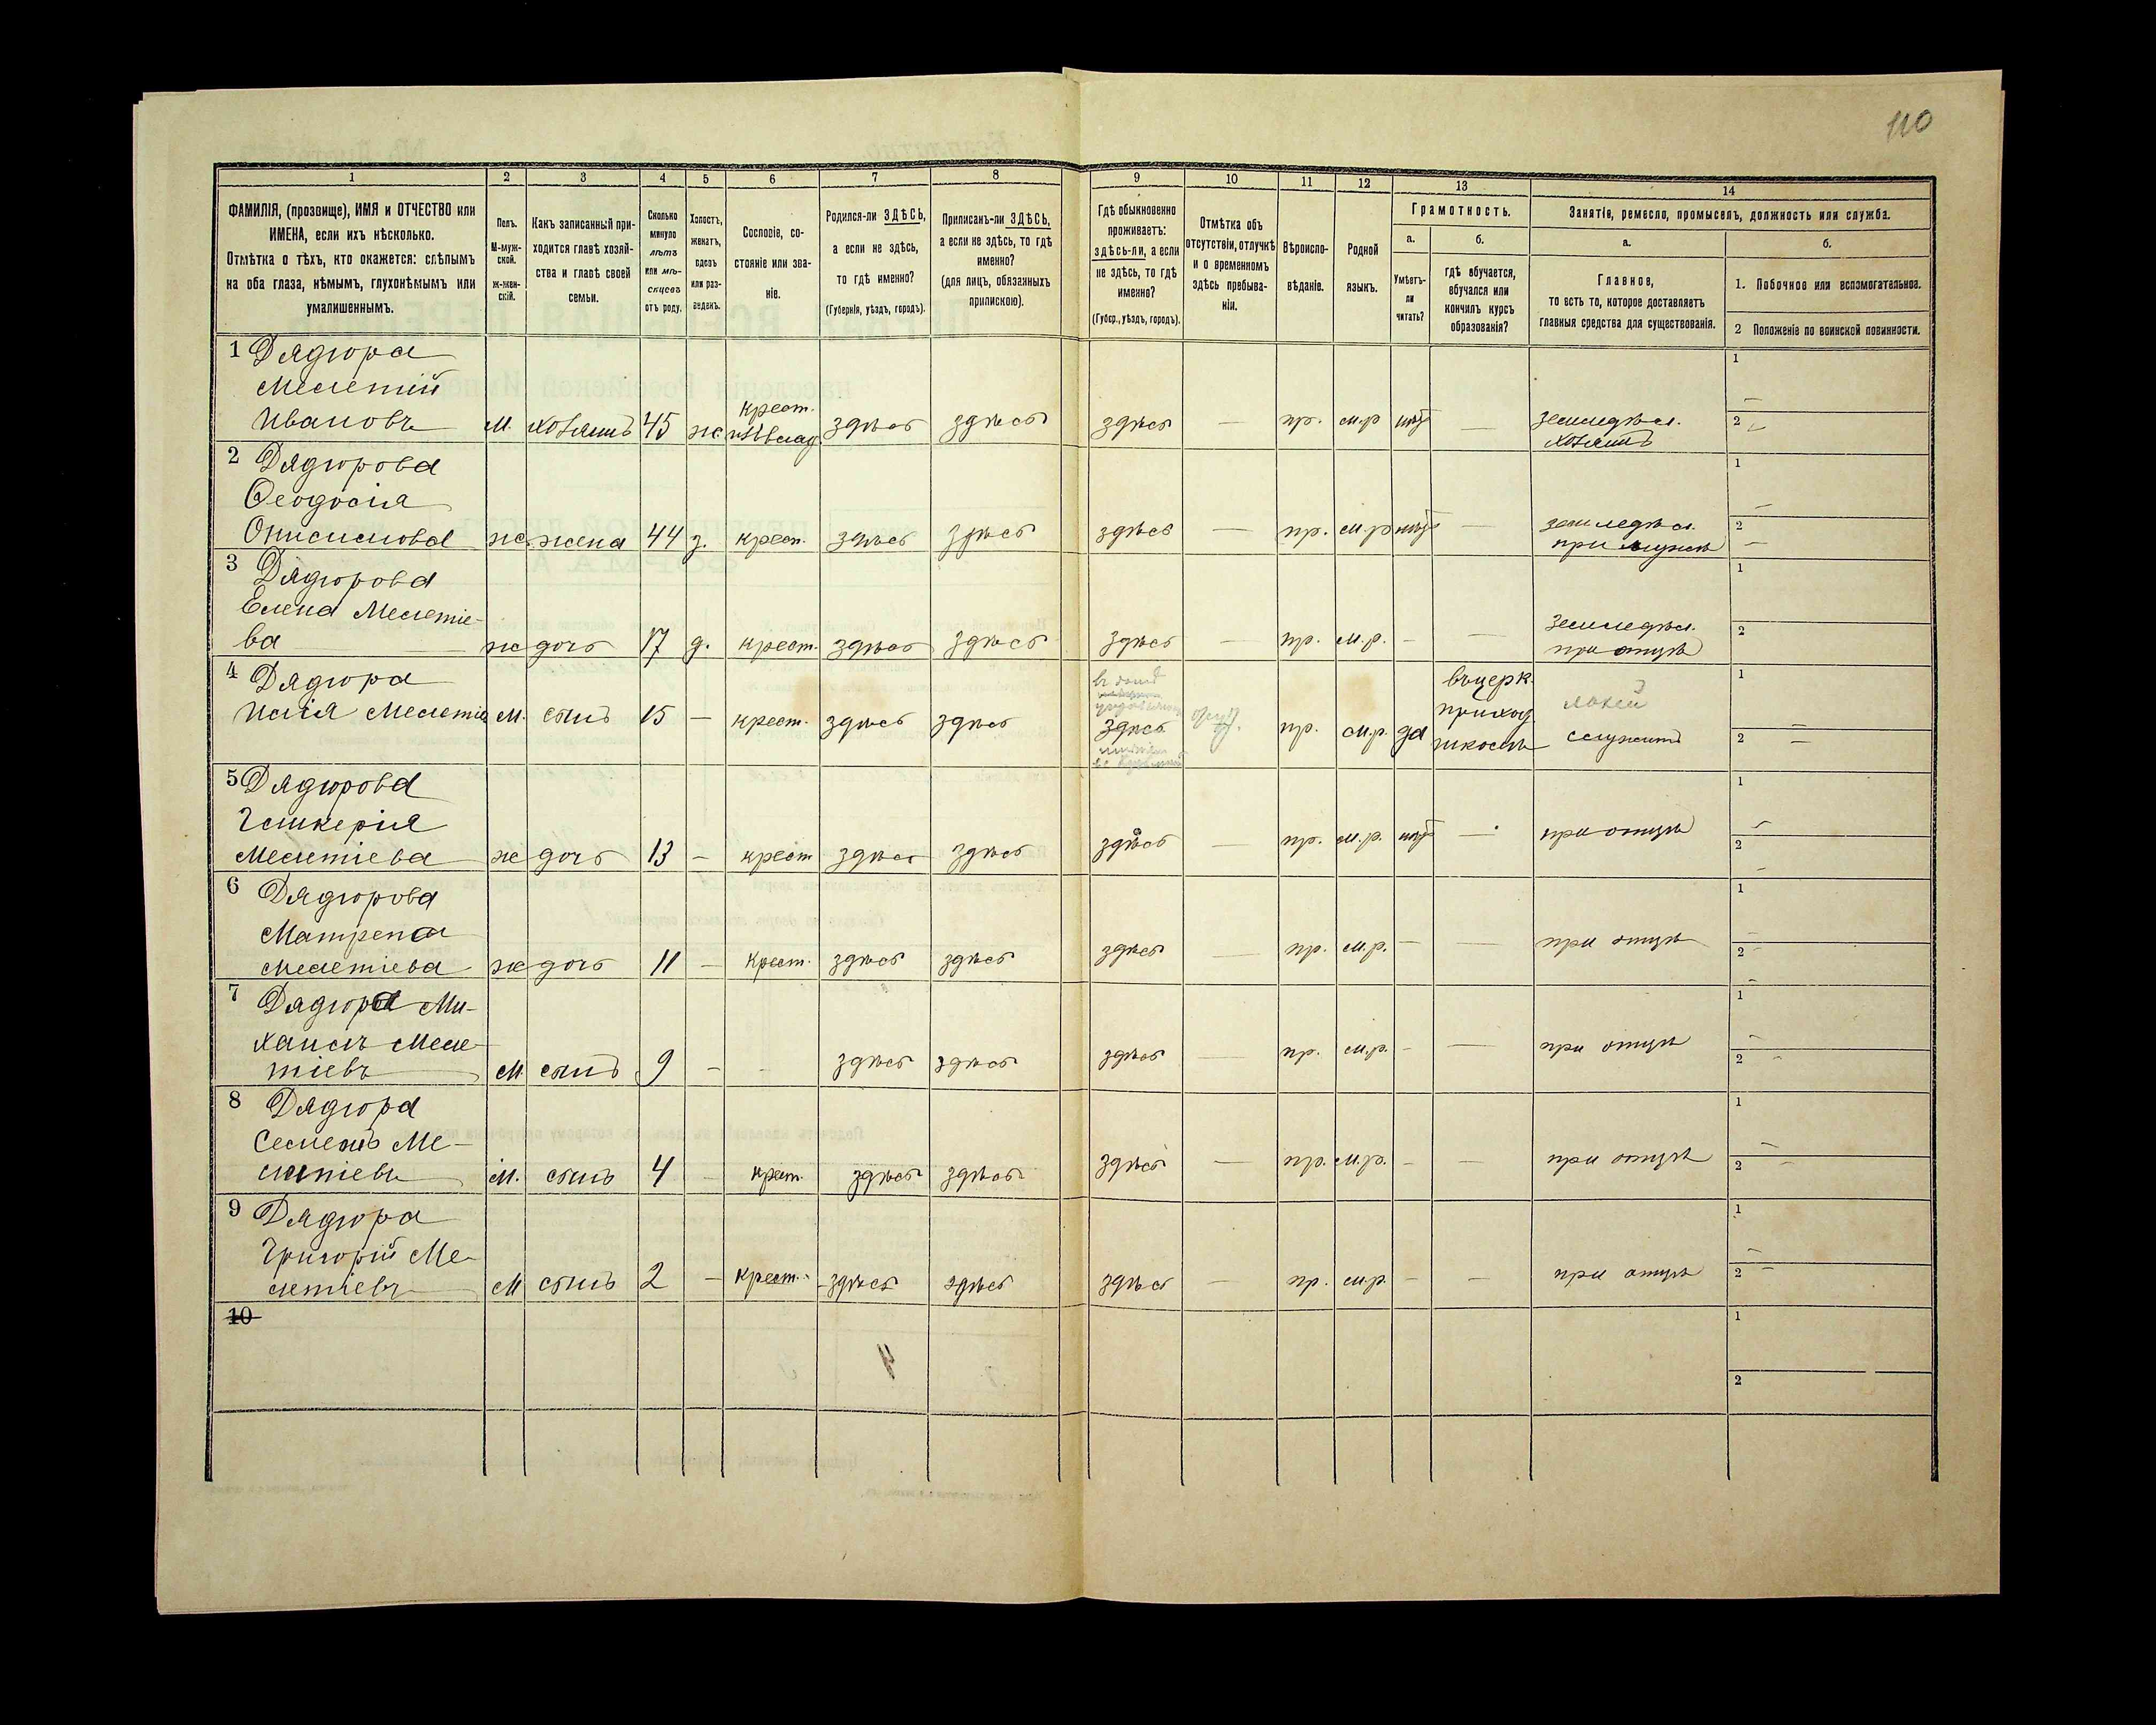 110
1 2 3 4 5 6 7 8 9 10 11 12 13 14
ФАМИЛІЯ, (прозвище), ИМЯ и ОТЧЕСТВО или
ИМЕНА, если ихъ нѣсколько.
Отмѣтка о тѣхъ, кто окажется: слѣпымъ
на оба глаза, нѣмымъ, глухонѣмымъ или
умалишеннымъ.
Полъ.
М-муж-
ской.
ж-жен-
скій.
Какъ записанный при-
ходится главѣ хозяй-
ства и главѣ своей
семьи.
Сколько
минуло
лѣтъ
или мѣ-
сяцевъ
отъ роду.
Холостъ,
женатъ,
вдовъ
или раз-
веденъ.
Сословіе, со-
стояніе или зва-
ніе.
Родился-ли ЗДѢСЬ,
а если не здѣсь,
то гдѣ именно?
(Губернія, уѣздъ, городъ).
Приписанъ-ли ЗДѢСЬ,
а если не здѣсь, то гдѣ
именно?
(для лицъ, обязанныхъ
припискою).
Гдѣ обыкновенно
проживаетъ:
здѣсь-ли, а если
не здѣсь, то гдѣ
именно?
(Губер., уѣздъ, городъ).
Отмѣтка объ
отсутствіи, отлучкѣ
и о временномъ
здѣсь пребыва-
ніи.
Вѣроиспо-
вѣданіе.
Родной
языкъ.
Грамотность.
а.
Умѣетъ-
ли
читать?
б.
гдѣ обучается,
обучался или
кончилъ курсъ
образованія?
Занятіе, ремесло, промыселъ, должность или служба.
а.
Главное,
то есть то, которое доставляетъ
главныя средства для существованія.
б.
1. Побочное или вспомогательное.
2 Положеніе по воинской повинности.
1 Дядюра
Мелетій
Ивановъ М. хозяинъ 45 ж крест. здѣсь здѣсь здѣсь — пр. м.р нѣтъ — земледѣл. хозяинъ 1 — 2 —
2 Дядюрова
Ѳеодосія
Онисимова ж. жена 44 з. крест. здѣсь здѣсь здѣсь — пр. м.р нѣтъ — земледѣл. при мужѣ 1 — 2 —
3 Дядюрова
Елена Мелетіе-
ва ж дочь 17 д. крест. здѣсь здѣсь здѣсь — пр. м.р. — — земледѣл. при отцѣ 1 2
4 Дядюра
Илія Мелетіев М. сынъ 15 — крест. здѣсь здѣсь здѣсь пр. м.р. да въ церк. приход школѣ лакей служитъ 1 — 2 —
5 Дядюрова
Гликерія
Мелетіева ж дочь 13 — крест здѣсь здѣсь здѣсь — пр. м.р. нѣтъ — при отцѣ 1 — 2 —
6 Дядюрова
Матрена
Мелетіева ж дочь 11 — крест. здѣсь здѣсь здѣсь — пр. м.р. — — при отцѣ 1 — 2 —
7 Дядюра Ми-
хаилъ Меле-
тіевъ М. сынъ 9 — — здѣсь здѣсь здѣсь — пр. м.р. — — при отцѣ 1 — 2 —
8 Дядюра
Семенъ Ме-
летіевъ М. сынъ 4 — крест. здѣсь здѣсь здѣсь — пр. м.р. — — при отцѣ 1 — 2 —
9 Дядюра
Григорій Ме-
летіевъ М сынъ 2 — крест. здѣсь здѣсь здѣсь — пр. м.р. — — при отцѣ 1 — 2 —
10 1 2